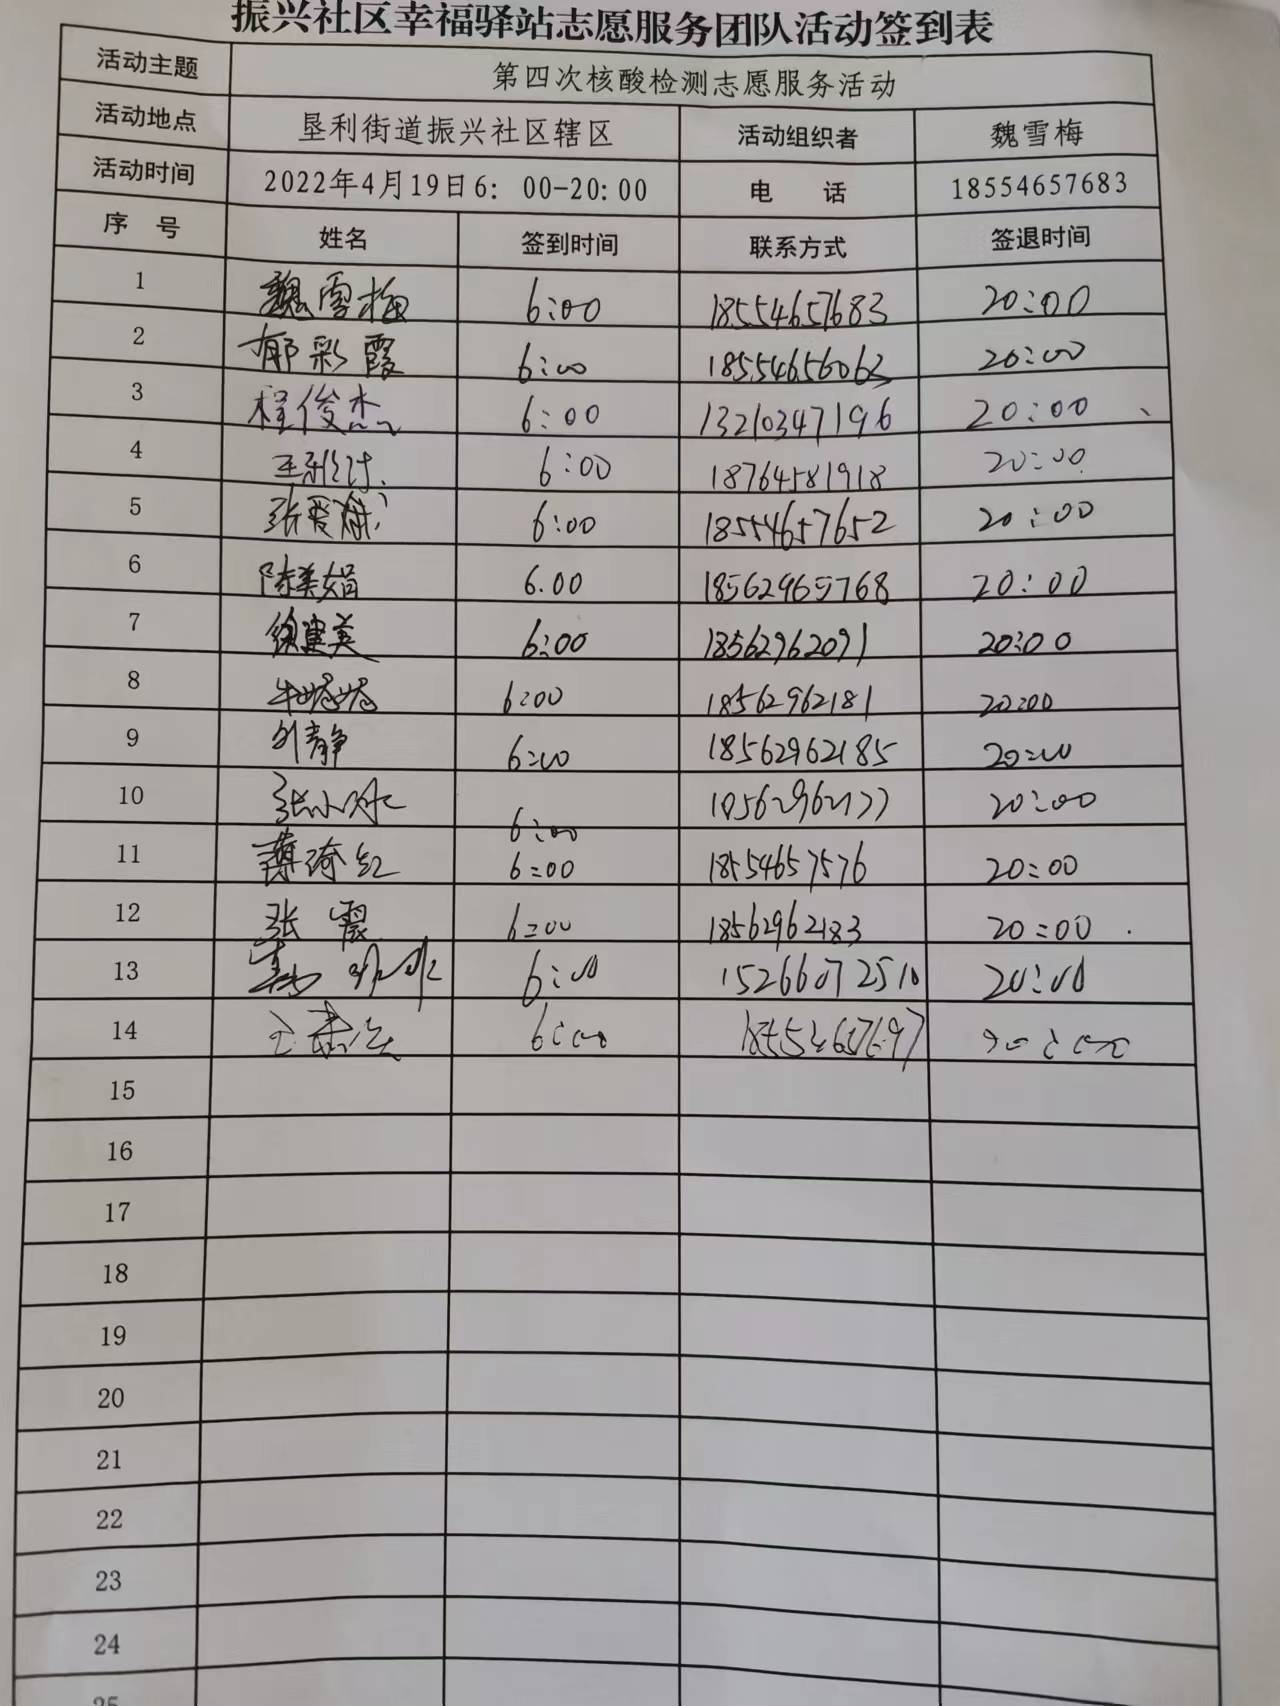 振兴社区幸福驿站志愿服务团队活动签到表
活动主题 第四次核酸检测志愿服务活动
活动地点 垦利街道振兴社区辖区 活动组织者 魏雪梅
活动时间 2022年4月19日6：00-20:00 电 话 18554657683
序 号 姓名 签到时间 联系方式 签退时间
1 魏雪梅 6:00 18554657683 20:00
2 郁彩霞 6:00 18554656062 20:00
3 程俊杰 6:00 13210347196 20:00
4 6:00 18764581918 20:00
5 6:00 18554657652 20:00
6 陈美娟 6.00 18562965768 20:00
7 徐建美 6:00 18562962091 20:00
8 6:00 18562962181 20:00
9 刘静 6:00 18562962185 20:00
10 6:00 20:00
11 薄琦红 6:00 18554657576 20:00
12 张霞 6:00 18562962183 20:00
13 6:00 15266072510 20:00
14 6:00 20:00
15
16
17
18
19
20
21
22
23
24
25